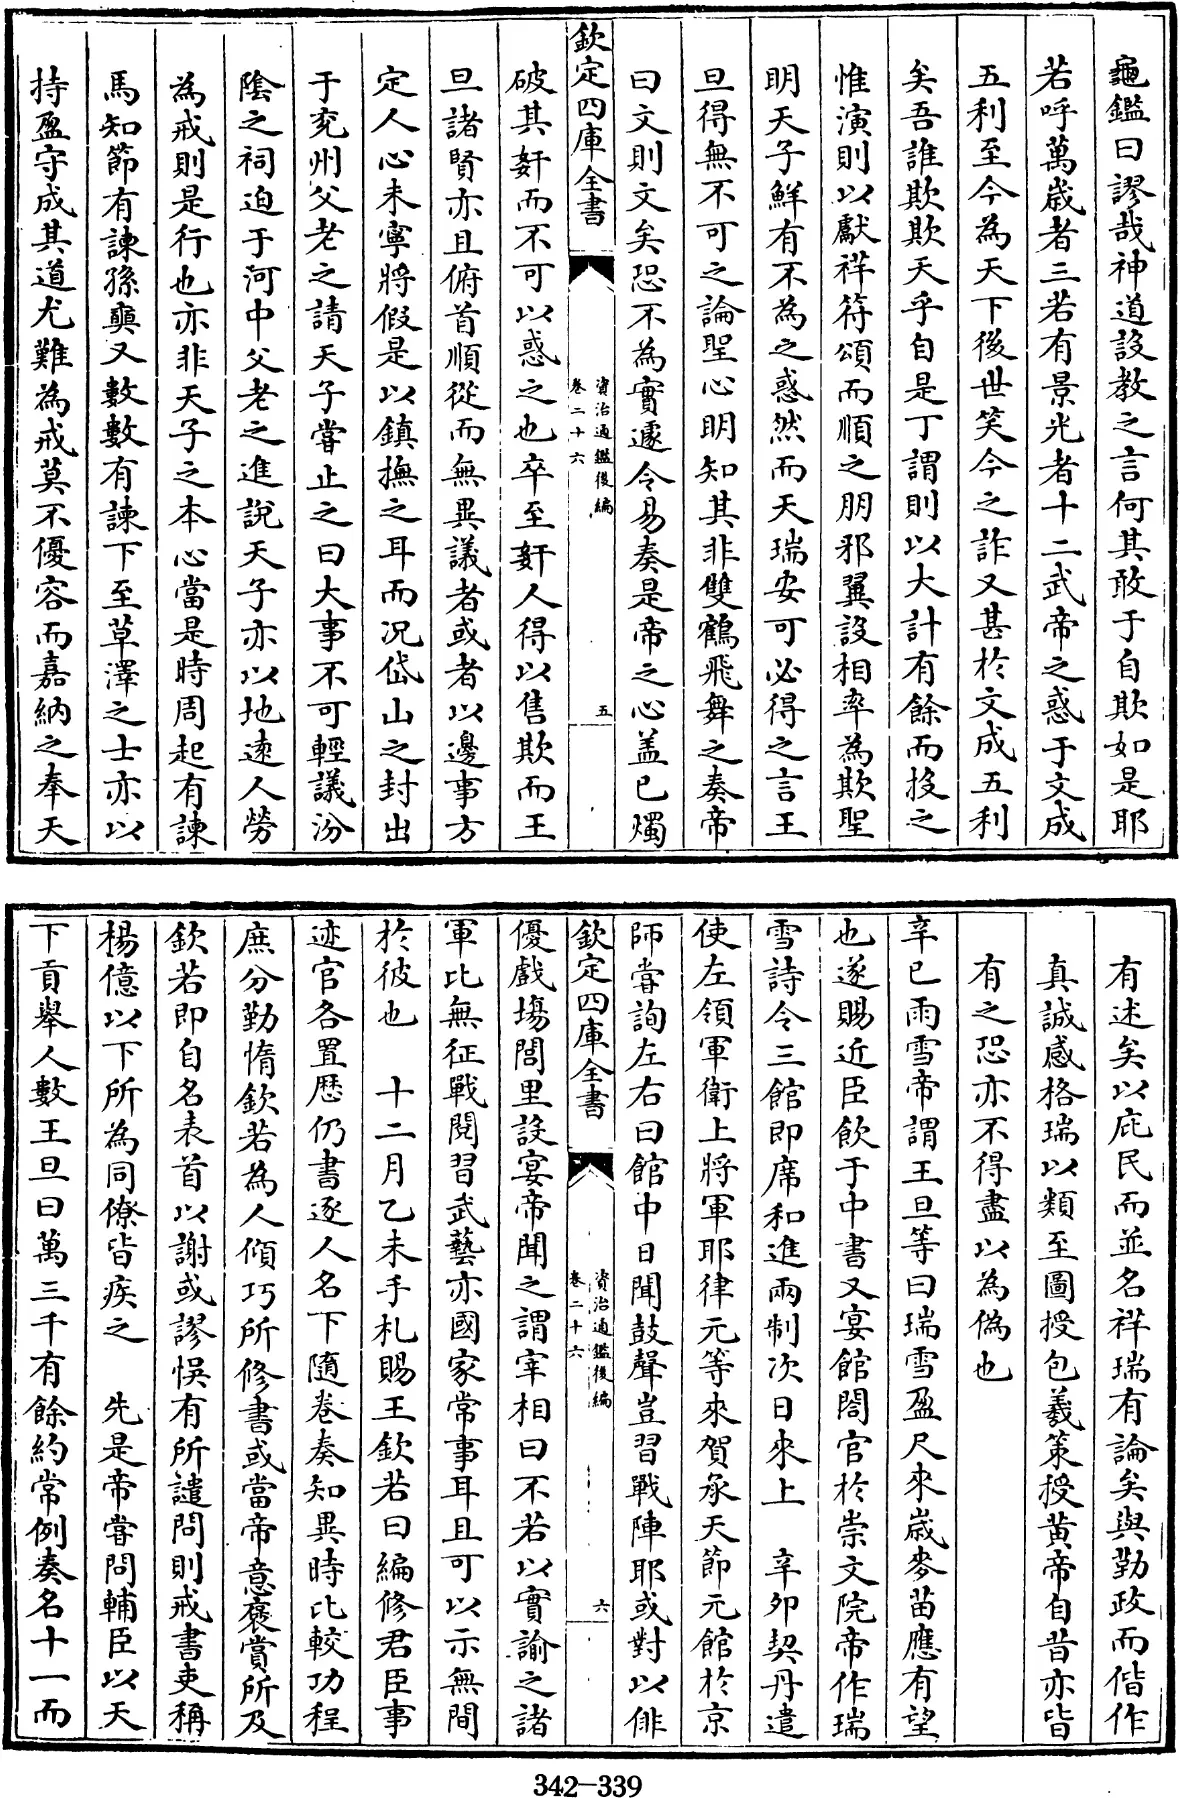 龜鑑曰謬哉神道設教之言何其敢于自欺如是耶
若呼萬歲者三若有景光者十二武帝之惑于文成
五利至今為天下後世笑今之詐又甚於文成五利
矣吾誰欺欺天乎自是丁謂則以大計有餘而投之
惟演則以獻祥符頌而順之朋邪翼設相率為欺聖
明天子鮮有不為之惑然而天瑞安可必得之言王
旦得無不可之論聖心明知其非雙鶴飛舞之奏帝
曰文則文矣恐不為實遽令易奏是帝之心盖已燭
欽定四庫全書
資治通鑑後編
卷二十六
五
破其姧而不可以惑之也卒至姧人得以售欺而王
旦諸賢亦且俯首順從而無異議者或者以邊事方
定人心未寧將假是以鎮撫之耳而况岱山之封出
于兖州父老之請天子嘗止之曰大事不可輕議汾
陰之祠迫于河中父老之進說天子亦以地逺人勞
為戒則是行也亦非天子之本心當是時周起有諫
馬知節有諫孫奭又數數有諫下至草澤之士亦以
持盈守成其道尤難為戒莫不優容而嘉納之奉天
有述矣以庇民而並名祥瑞有論矣與勤政而偕作
真誠感格瑞以類至圖授包羲策授黄帝自昔亦皆
有之恐亦不得盡以為偽也
辛巳雨雪帝謂王旦等曰瑞雪盈尺來歲麥苗應有望
也遂賜近臣飲于中書又宴館閣官於崇文院帝作瑞
雪詩令三館即席和進兩制次日來上　辛卯契丹遣
使左領軍衛上將軍耶律元等來賀承天節元館於京
師嘗詢左右曰館中日聞鼓聲豈習戰陣耶或對以俳
欽定四庫全書
資治通鑑後編
卷二十六
六
優戲塲閭里設宴帝聞之謂宰相曰不若以實諭之諸
軍比無征戰閱習武藝亦國家常事耳且可以示無間
於彼也　十二月乙未手札賜王欽若曰編修君臣事
迹官各置歷仍書逐人名下隨卷奏知異時比較功程
庶分勤惰欽若為人傾巧所修書或當帝意褒賞所及
欽若即自名表首以謝或謬悞有所譴問則戒書吏稱
楊億以下所為同僚皆疾之　先是帝嘗問輔臣以天
下貢舉人數王旦曰萬三千有餘約常例奏名十一而
342-339